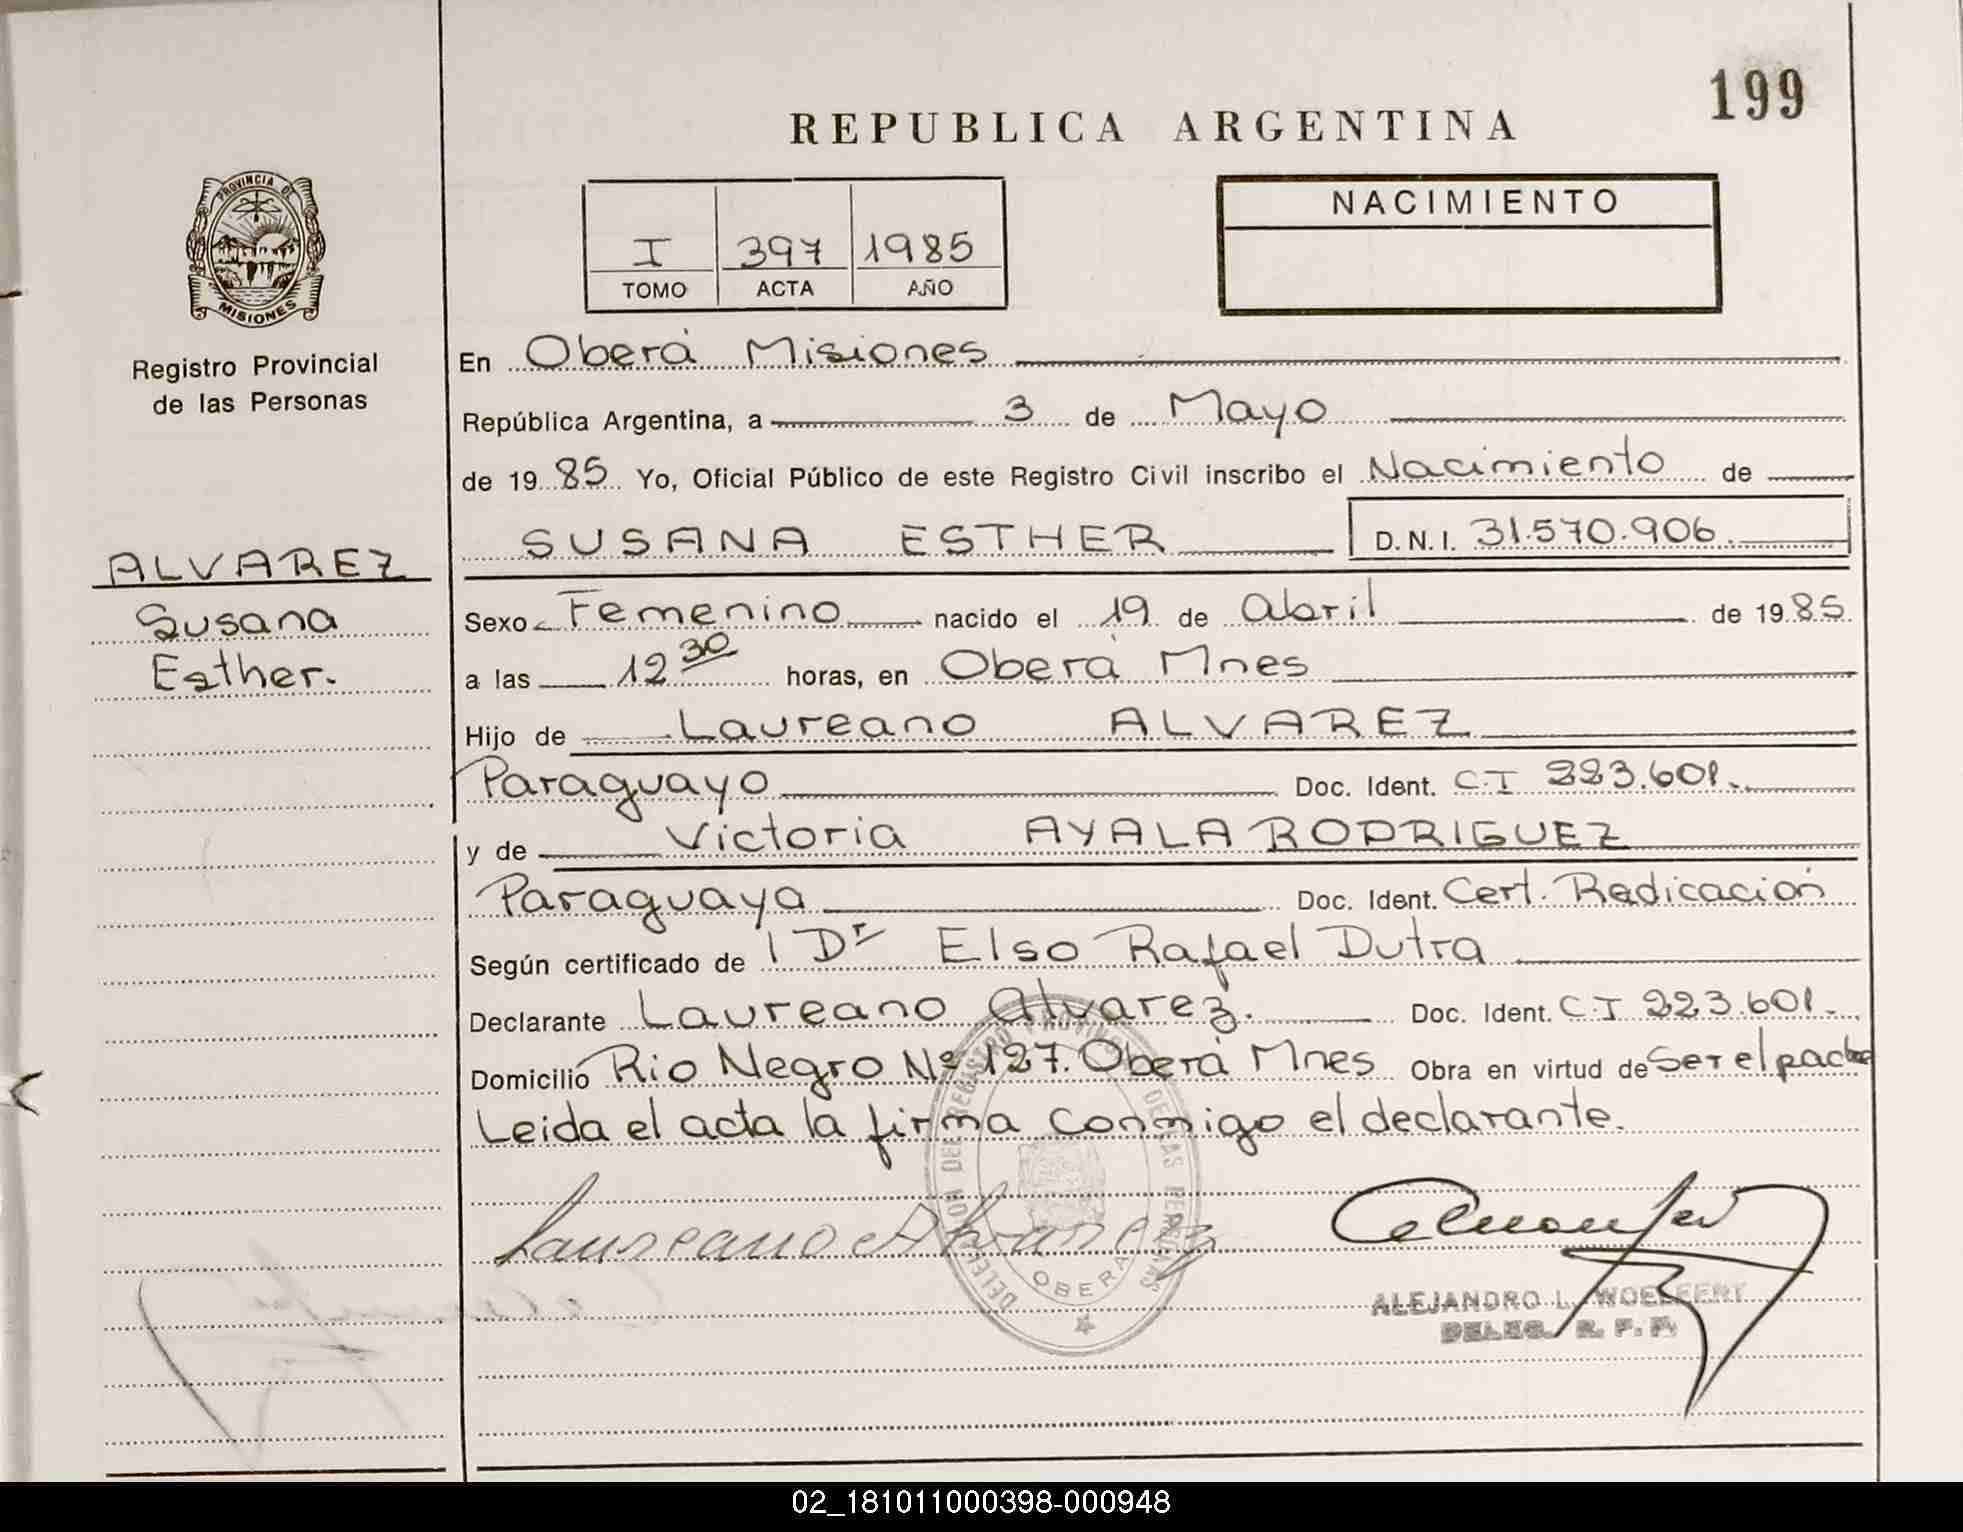 199
REPUBLICA ARGENTINA
PROVINCIA DE
MISIONES
Registro Provincial
de las Personas
I 397 1985
TOMO ACTA AÑO
NACIMIENTO
En Oberá Misiones
República Argentina, a 3 de Mayo
de 1985 Yo, Oficial Público de este Registro Civil inscribo el Nacimiento de
SUSANA ESTHER D.N.I. 31.570.906
ALVAREZ
Susana
Esther.
Sexo Femenino nacido el 19 de abril de 1985.
a las 12 30 horas, en Oberá Mnes
Hijo de Laureano ALVAREZ
Paraguayo Doc. Ident. C.I 223.601.
y de Victoria AYALA RODRIGUEZ
Paraguaya Doc. Ident. Cert. Radicación
Según certificado de 1 Dr Elso Rafael Dutra
Declarante Laureano Alvarez. Doc. Ident. C.I 223.601.
Domicilio Rio Negro Nº 127. Oberá Mnes Obra en virtud de Ser el padre
Leida el acta la firma conmigo el declarante.
Laureano Alvarez
DEL REGISTRO PROVINCIAL DE LAS PERSONAS
OBERA
ALEJANDRO L. WOELFERT
DELEG. R. P. P.
02_181011000398-000948